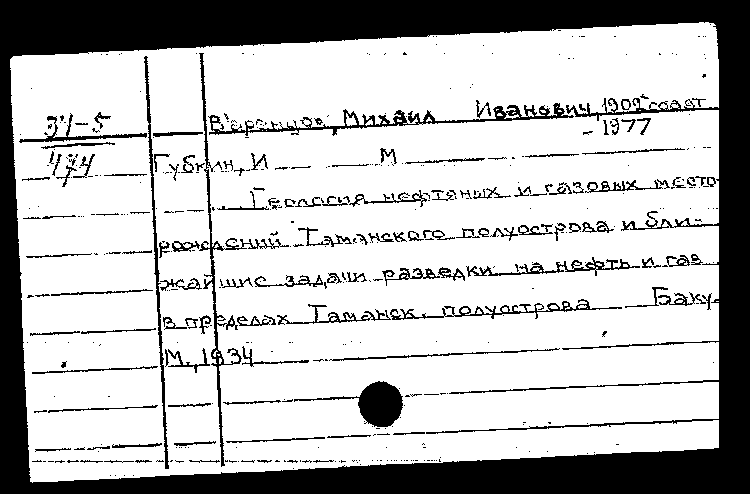 34-5
Варенцов, Михаил Иванович, 1902- соавт
- 1977
474
Губкин, И М
Геология нефтяных и газовых место-
рождений Таманского полуострова и бли-
жайшие задачи разведки на нефть и газ
в пределах Таманск. полуострова Баку-
М., 1934